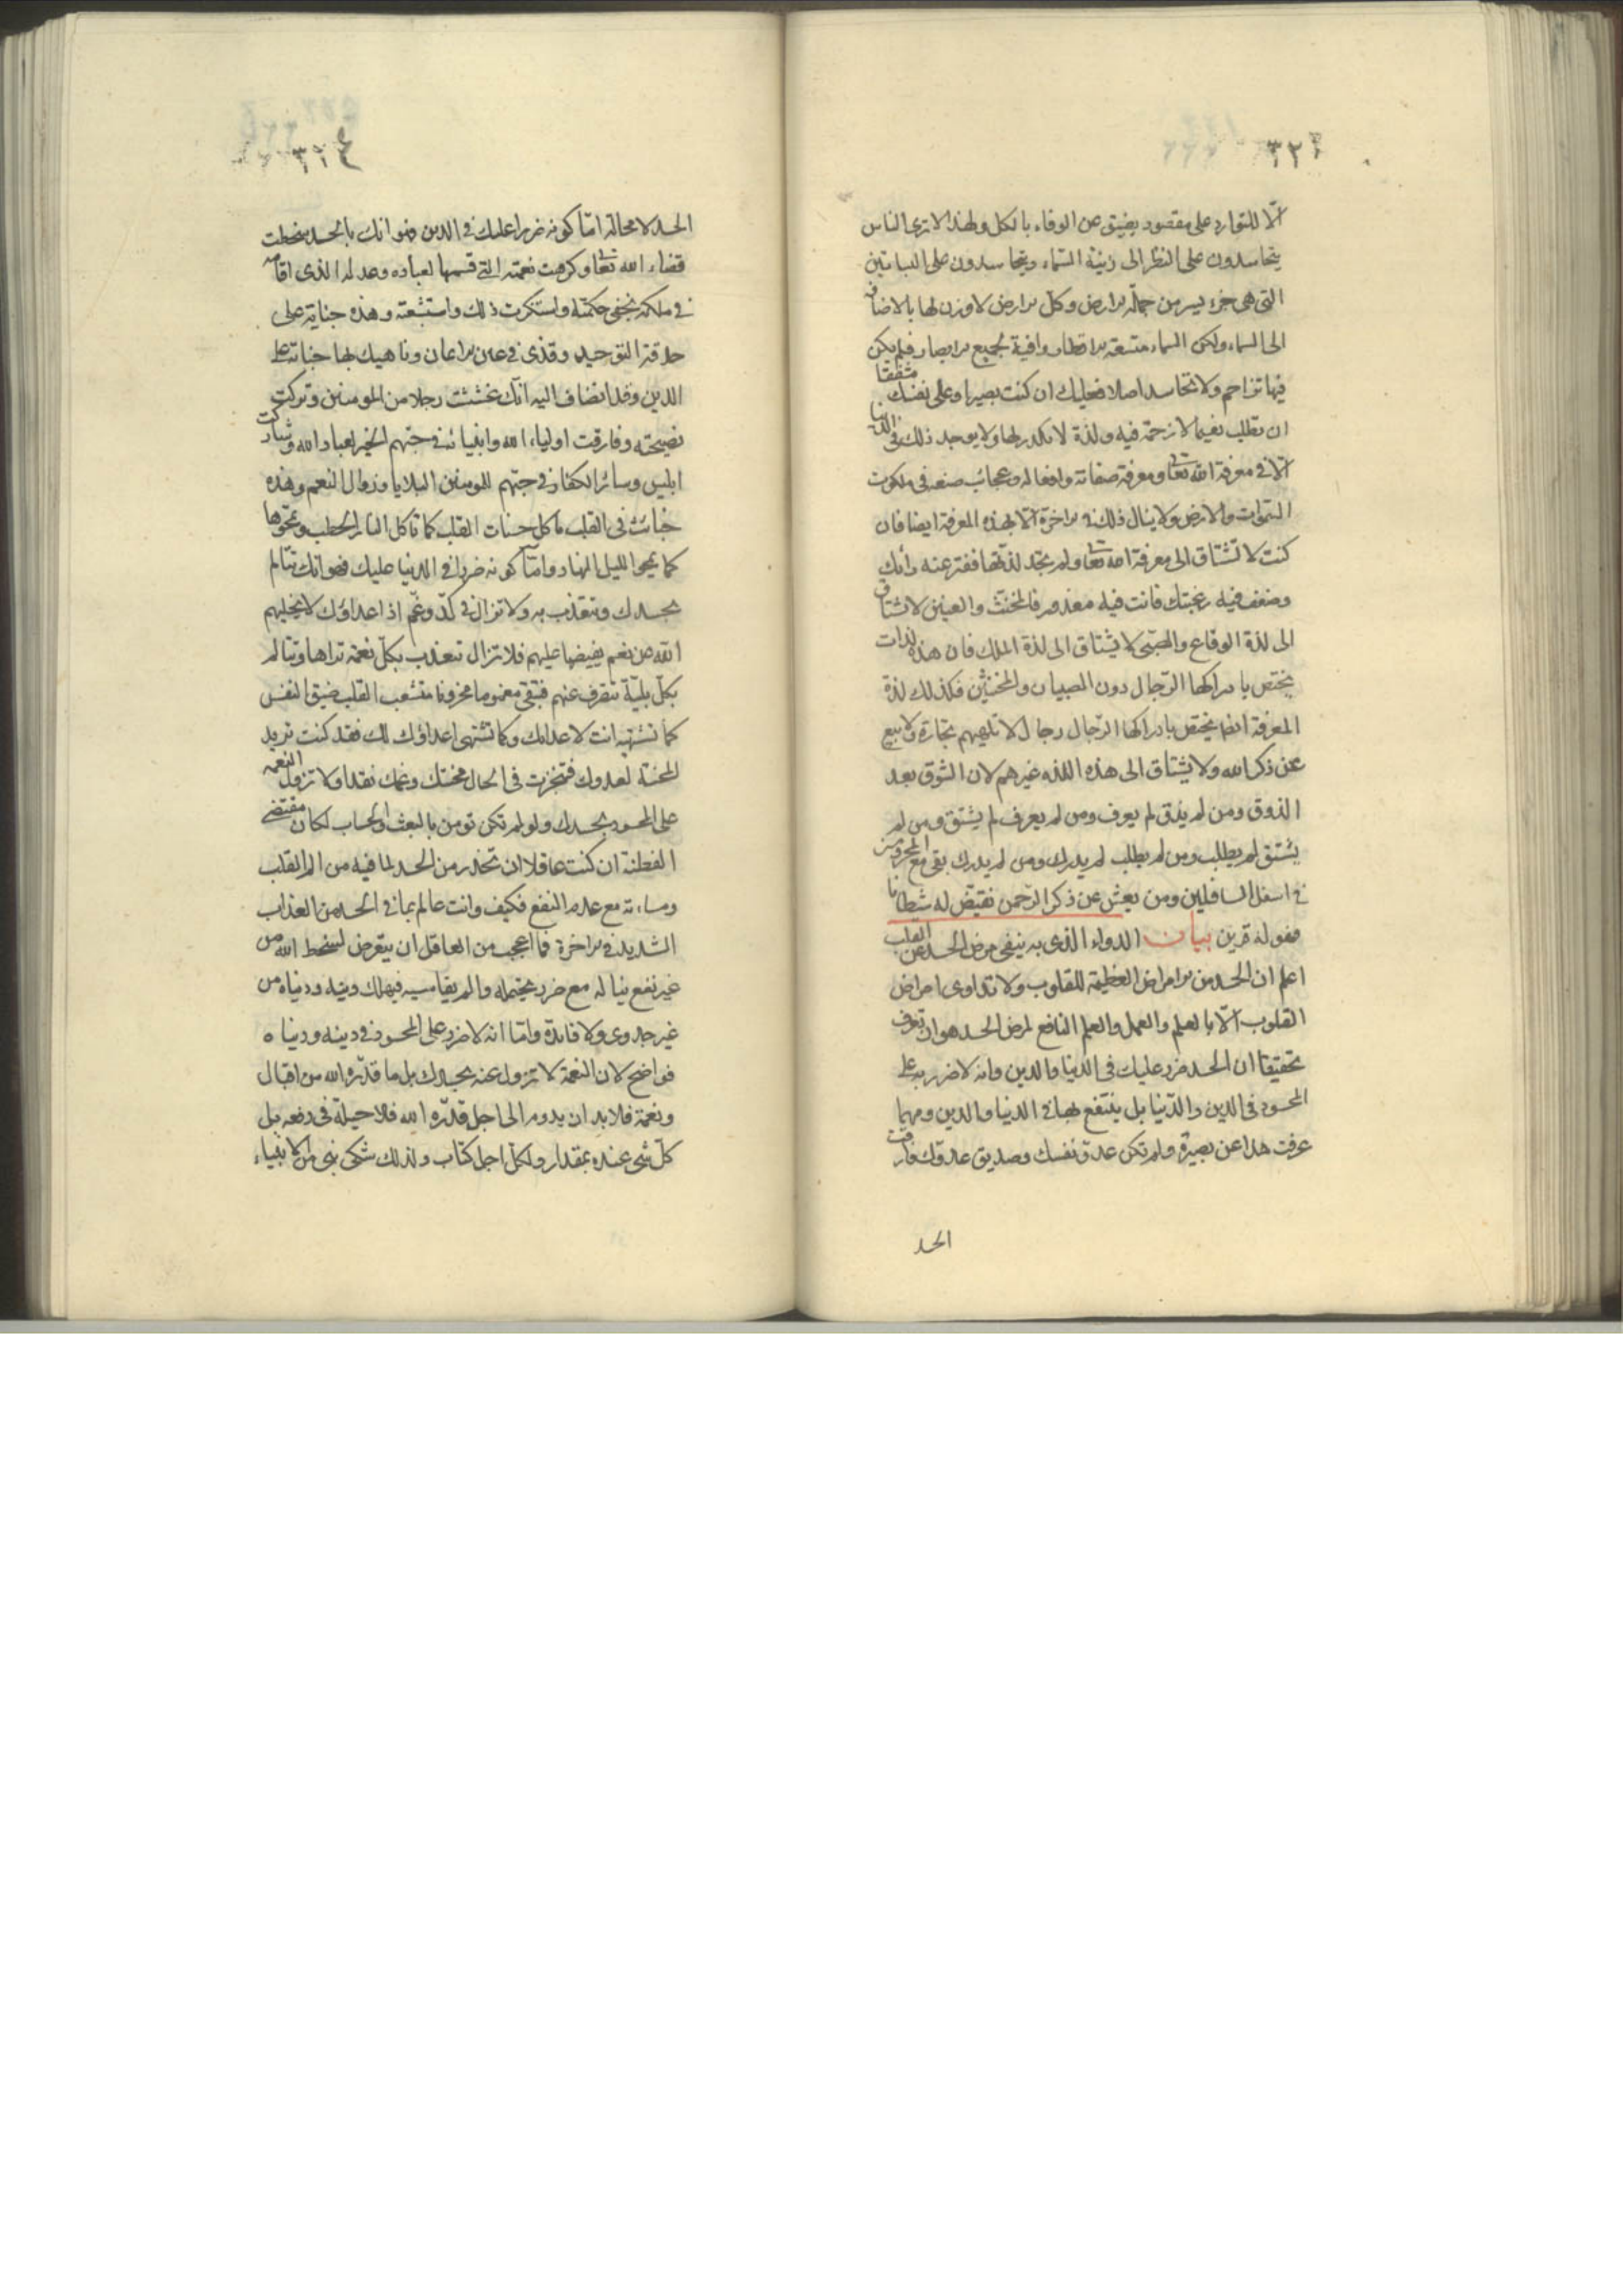 ٣٢٣
الّا للتوارد على مقصود يضيق عن الوفاء بالكل ولهذا لا ترى الناس
يتحاسدون على النظر الى زينة السّماء ويتحاسدون على البساتين
التى هى جزء يسير من جملة الارض وكلّ الارض لا وزن لها بالاضافة
الى السماء ولكن السماء متسعة الاقطار وافية بجميع الابصار فلم يكن
فيها تزاحم ولا تحاسد اصلا فعليك ان كنت بصيرا وعلى نفسك مشفقا
ان تطلب نعيما لا زحمة فيه ولذة لا مكدر لها ولا يوجد ذلك فى الدنيا
الّا فى معرفة الله تعا ومعرفة صفاته وافعاله وعجائب صنعه فى ملكوت
السّموات والارض ولا ينال ذلك فى الاخرة الّا بهذه المعرفة ايضا فان
كنت لا تشتاق الى معرفة الله تعا ولم تجد لذّتها ففتر عنه رأيك
وضعف فيه رغبتك فانت فيه معذور فالمخنّث والعنين لا يشتاق
الى لذة الوقاع والصّبى لا يشتاق الى لذة الملك فان هذه لذات
يختص بادراكها الرّجال دون الصبيان والمخنثين فكذلك لذة
المعرفة ايضا يختص بادراكها الرّجال رجال لا تلهيهم تجارة ولا بيع
عن ذكر الله ولا يشتاق الى هذه اللذه غيرهم لان الشوق بعد
الذوق ومن لم يذق لم يعرف ومن لم يعرف لم يشتق ومن لم
يشتق لم يطلب ومن لم يطلب لم يدرك ومن لم يدرك بقى مع المحرومين
فى اسفل السافلين ومن يعش عن ذكر الرّحمن نقيّض له شيطانا
فهو له قرين بيان الدواء الذى به ينفى مرض الحسد عن القلب
اعلم ان الحسد من الامراض العظيمة للقلوب ولا تداوى امراض
القلوب الّا بالعلم والعمل والعلم النافع لمرض الحسد هو ان تعرف
تحقيقا ان الحسد ضرر عليك فى الدّنيا والدين وانه لا ضرر به على
المحسود فى الدين والدّنيا بل ينتفع بها فى الدنيا والدين ومهما
عرفت هذا عن بصيرة ولم تكن عدوّ نفسك وصديق عدوّك فارقت
الحسد
٣٢٤
الحسد لا محالة امّا كونه ضررا عليك فى الدين فهو انك بالحسد سخطت
قضاء الله تعا وكرهت نعمته التى قسمها لعباده وعدله الذى اقامه
فى ملكه بخفى حكمته واستنكرت ذلك واستبشعته وهذه جناية على
حدقة التوحيد وقذى فى عين الايمان وناهيك بها جناية على
الدين وقد انضاف اليه انّك غششت رجلا من المومنين وتركت
نصيحته وفارقت اولياء الله وانبيائه فى حبّهم الخير لعباد الله وشاركت
ابليس وسائر الكفار فى حبّهم للمومنين البلايا وزوال النعم وهذه
خبائث فى القلب تاكل حسنات القلب كما تاكل النار الحطب وتمحوها
كما يمحو الليل النهار وامّا كونه ضررا فى الدنيا عليك فهو انك تتالم
بحسدك وتتعذب به ولا تزال فى كدّ وغمّ اذ اعداؤك لا يخليهم
الله عن نعم يفيضها عليهم فلا تزال تتعذب بكلّ نعمة تراها وتتالم
بكلّ بليّة تنصرف عنهم فتبقى مغموما محزونا متشعب القلب ضيق النفس
كما تشتهيه انت لاعدائك وكما تشتهى اعداؤك لك فقد كنت تريد
المحنة لعدوك فتنجزت فى الحال محنتك وغمك نقدا ولا تزول النعمه
على المحسود بحسدك ولو لم تكن تومن بالبعث والحساب لكان مقتضى
الفطنة ان كنت عاقلا ان تحذر من الحسد لما فيه من الم القلب
ومساءته مع عدم النفع فكيف وانت عالم بما فى الحسد من العذاب
الشديد فى الاخرة فما اعجب من العاقل ان يتعرض لسخط الله من
غير نفع يناله مع ضرر يحتمله والم يقاسيه فيهلك دينه ودنياه من
غير جدوى ولا فائدة وامّا انه لا ضرر على المحسود فى دينه ودنياه
فواضح لان النعمة لا تزول عنه بحسدك بل ما قدّره الله من اقبال
ونعمة فلا بد ان يدوم الى اجل قدّره الله فلا حيلة فى دفعه بل
كلّ شى عنده بمقدار ولكلّ اجل كتاب ولذلك شكى نبى من الانبياء